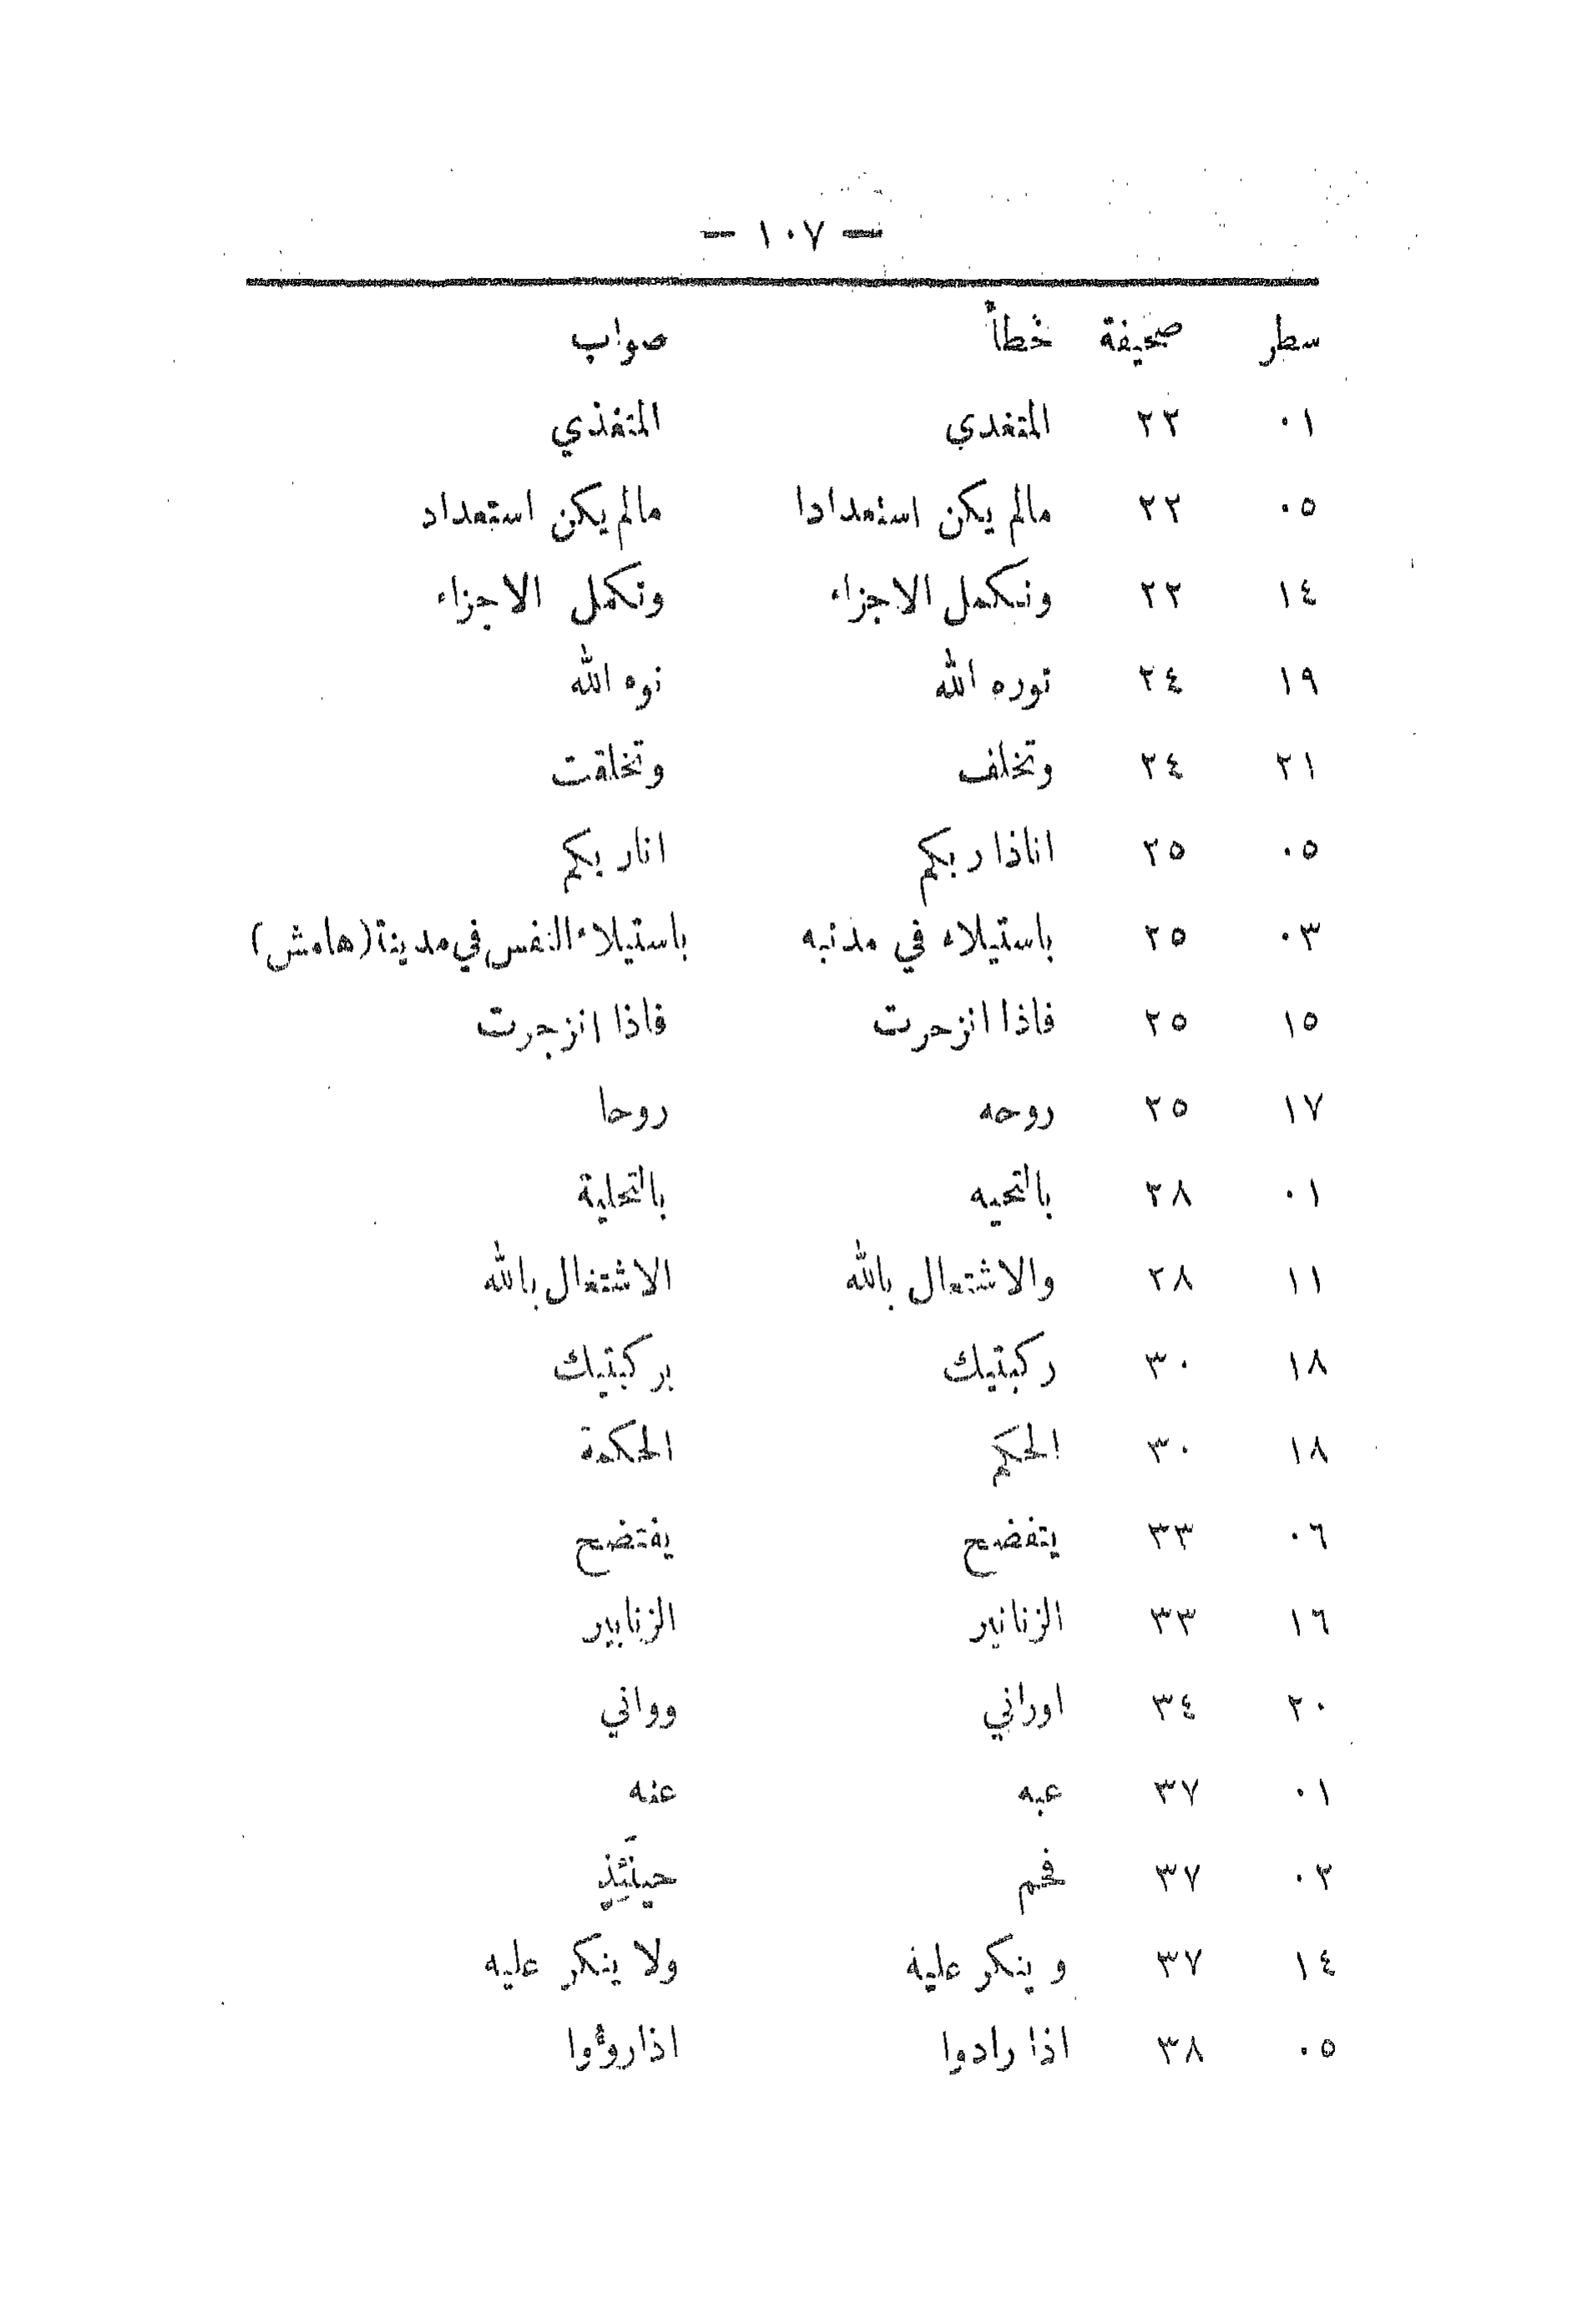 — ١٠٧ —
سطر صحيفة خطأ صواب
٠١ ٢٢ المتغدي المتغذي
٠٥ ٢٢ مالم يكن استعدادا مالم يكن استعداد
١٤ ٢٢ وتكمل الاجزاء وتكمل الاجزاء
١٩ ٢٤ نوره الله نوه الله
٢١ ٢٤ وتخلف وتخلقت
٠٥ ٢٥ اناذا ربكم انا ربكم
٠٣ ٢٥ باستيلاء في مدنبه باستيلاء النفس في مدينة (هامش)
١٥ ٢٥ فاذا انزحرت فاذا انزجرت
١٧ ٢٥ روحه روحا
٠١ ٢٨ بالتحيه بالتحلية
١١ ٢٨ والاشتعال بالله الاشتغال بالله
١٨ ٣٠ ركبتيك بركبتيك
١٨ ٣٠ الحكم الحكمة
٠٦ ٣٣ يتفضح يفتضح
١٦ ٣٣ الزنانير الزنابير
٢٠ ٣٤ اوراني وواني
٠١ ٣٧ عبه عنه
٠٢ ٣٧ فحم حينَئِذٍ
١٤ ٣٧ وينكر علية ولا ينكر عليه
٠٥ ٣٨ اذا رادوا اذا رؤوا